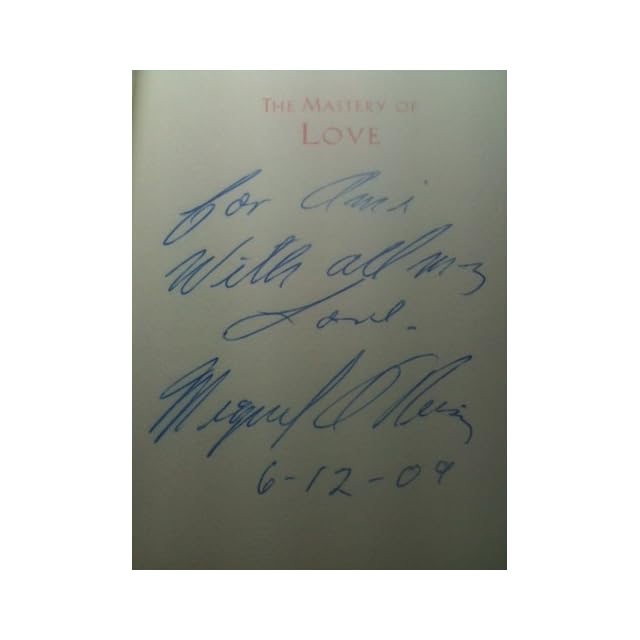 THE MASTERY OF
LOVE
for Ami
With all my
Love.
Miguel A Ruiz
6-12-09